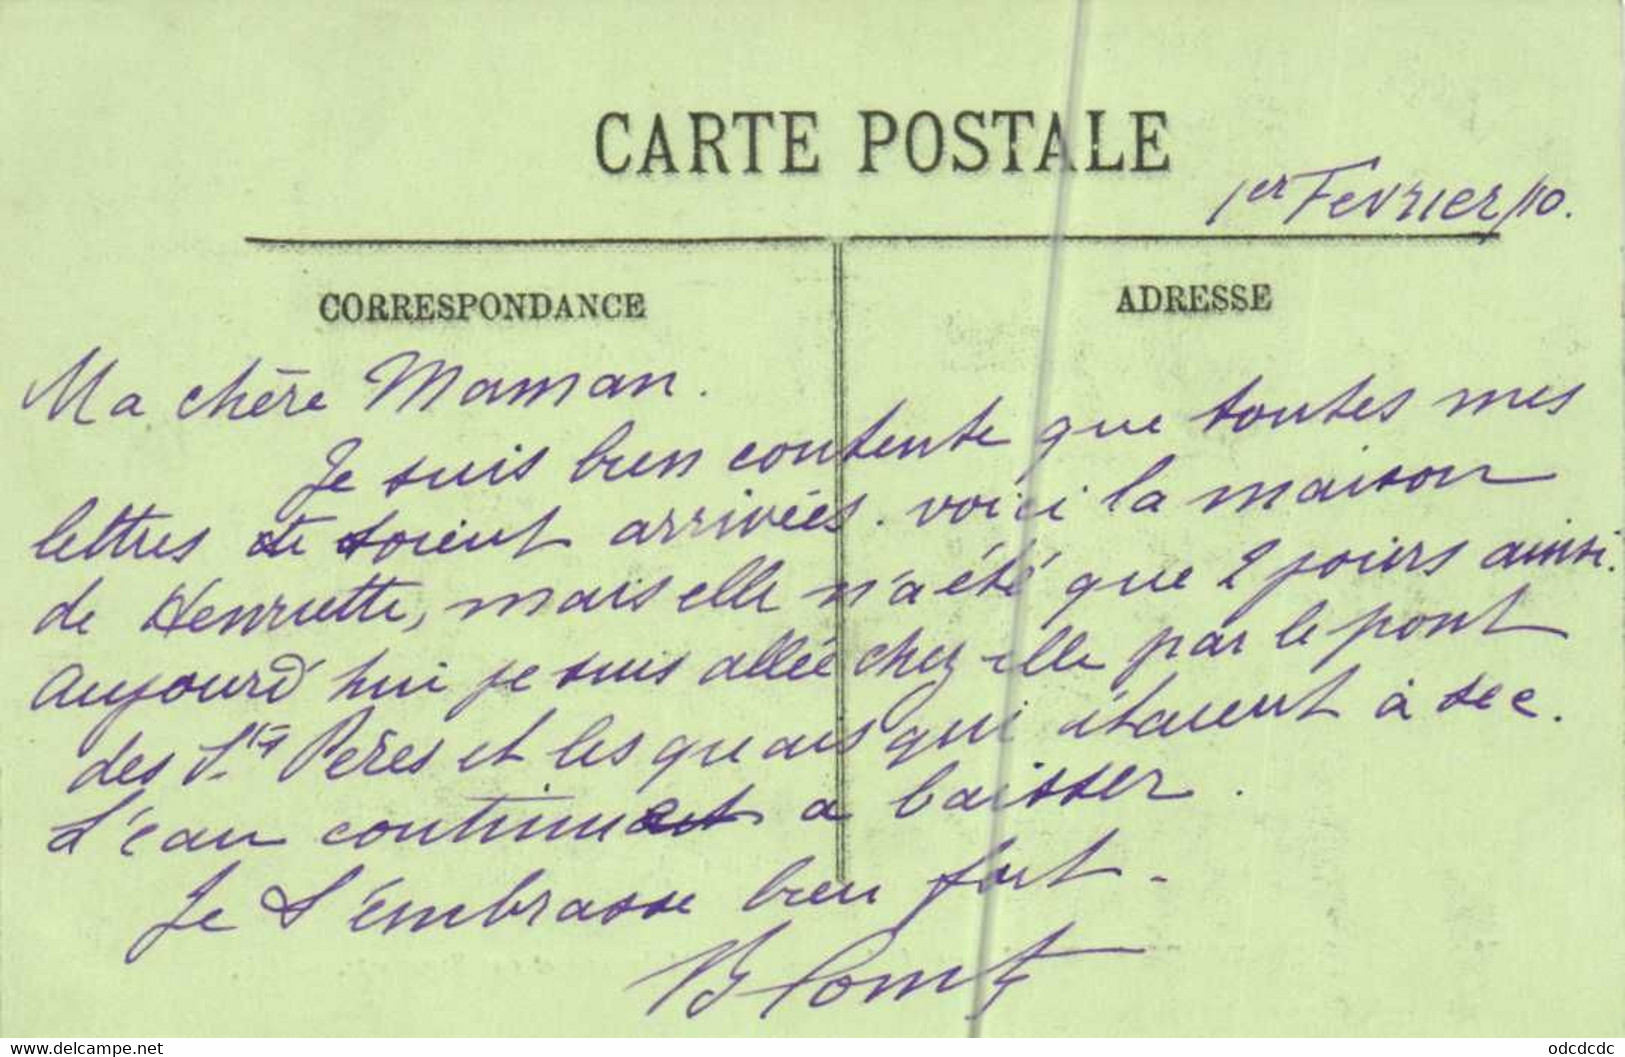 CARTE POSTALE
1er Fevrier/10.
CORRESPONDANCE
ADRESSE
Ma chère Maman.
Je suis bien contente que toutes mes
lettres te soient arrivées. voici la maison
de Henriette, mais elle n'a été que 2 jours ainsi.
Aujourd'hui je suis allée chez elle par le pont
des Sts Peres et les quais qui étaient à sec.
L'eau continue à baisser.
Je t'embrasse bien fort.
www.delcampe.net
odcdcdc